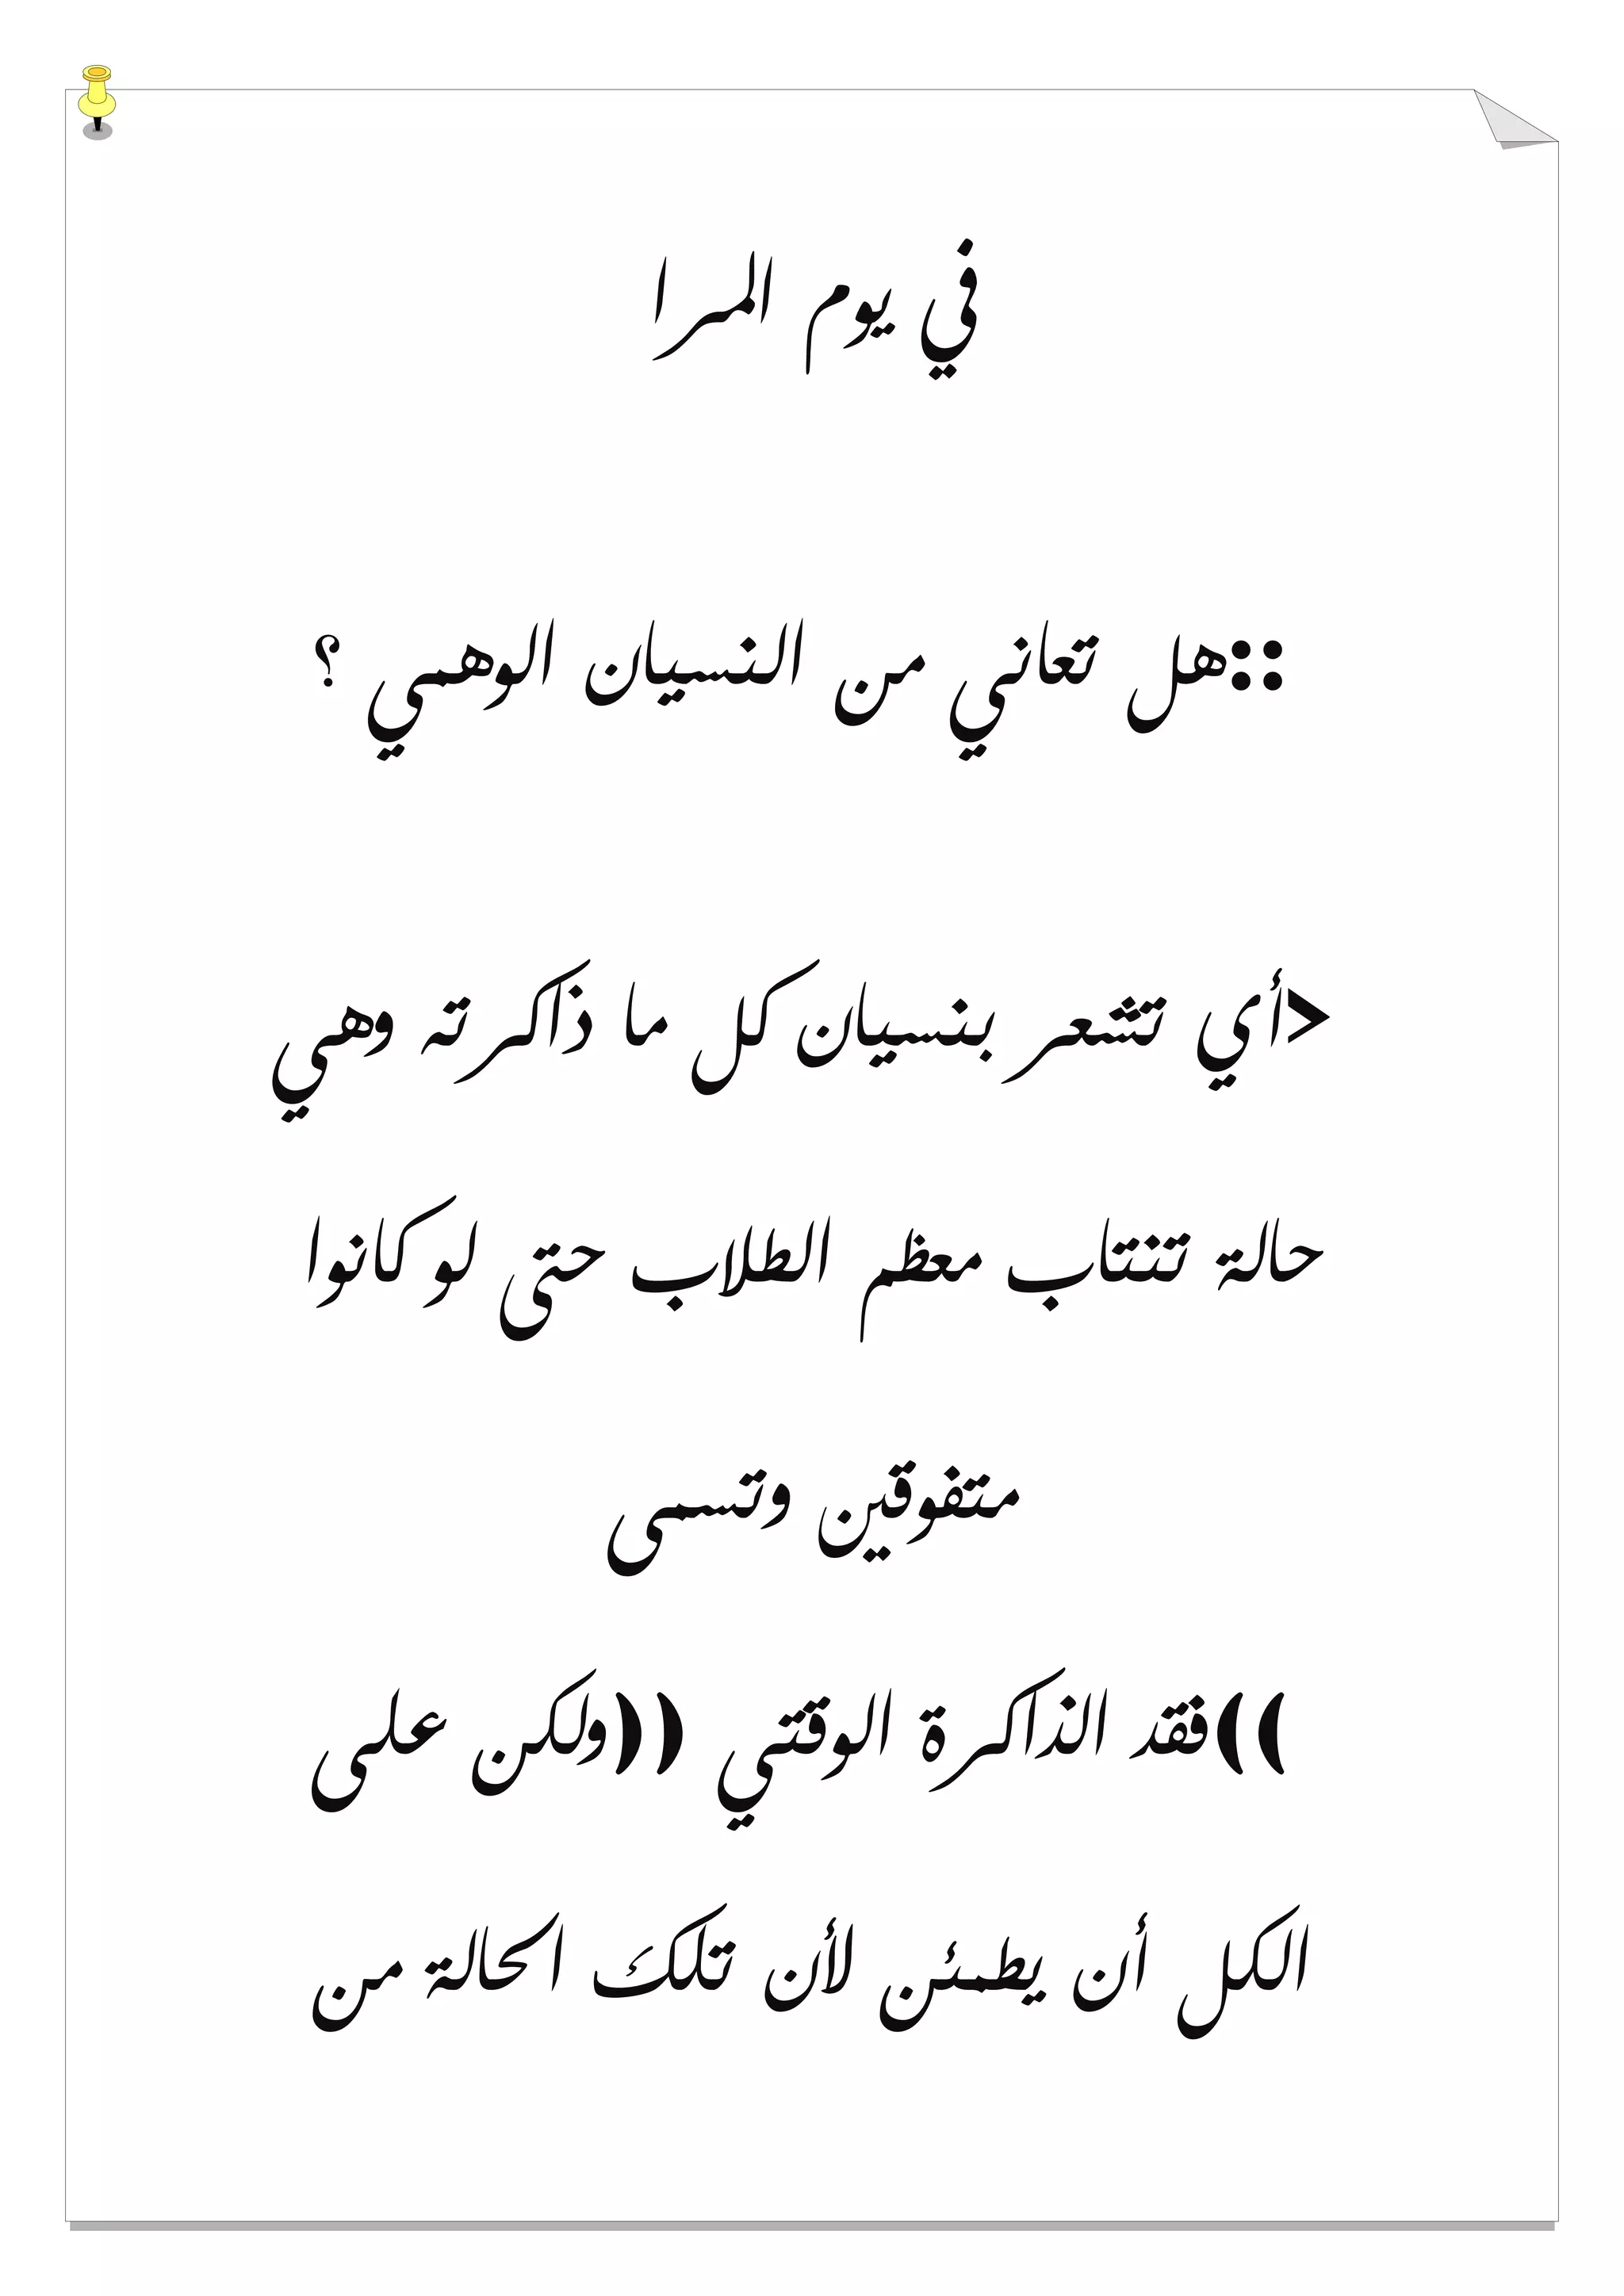 في يوم المرا
::هل تعاني من النسيان الوهمي ؟
أي تتشعر بنسيان كل ما ذكرته وهي
حالة تنتتاب معظم الطلاب حتى لو كانوا
متفوقين وتسمى
((فقد الذاكرة الوقتي ))ولكن على
الكل أن يطمئن لأن تلك الحالة من